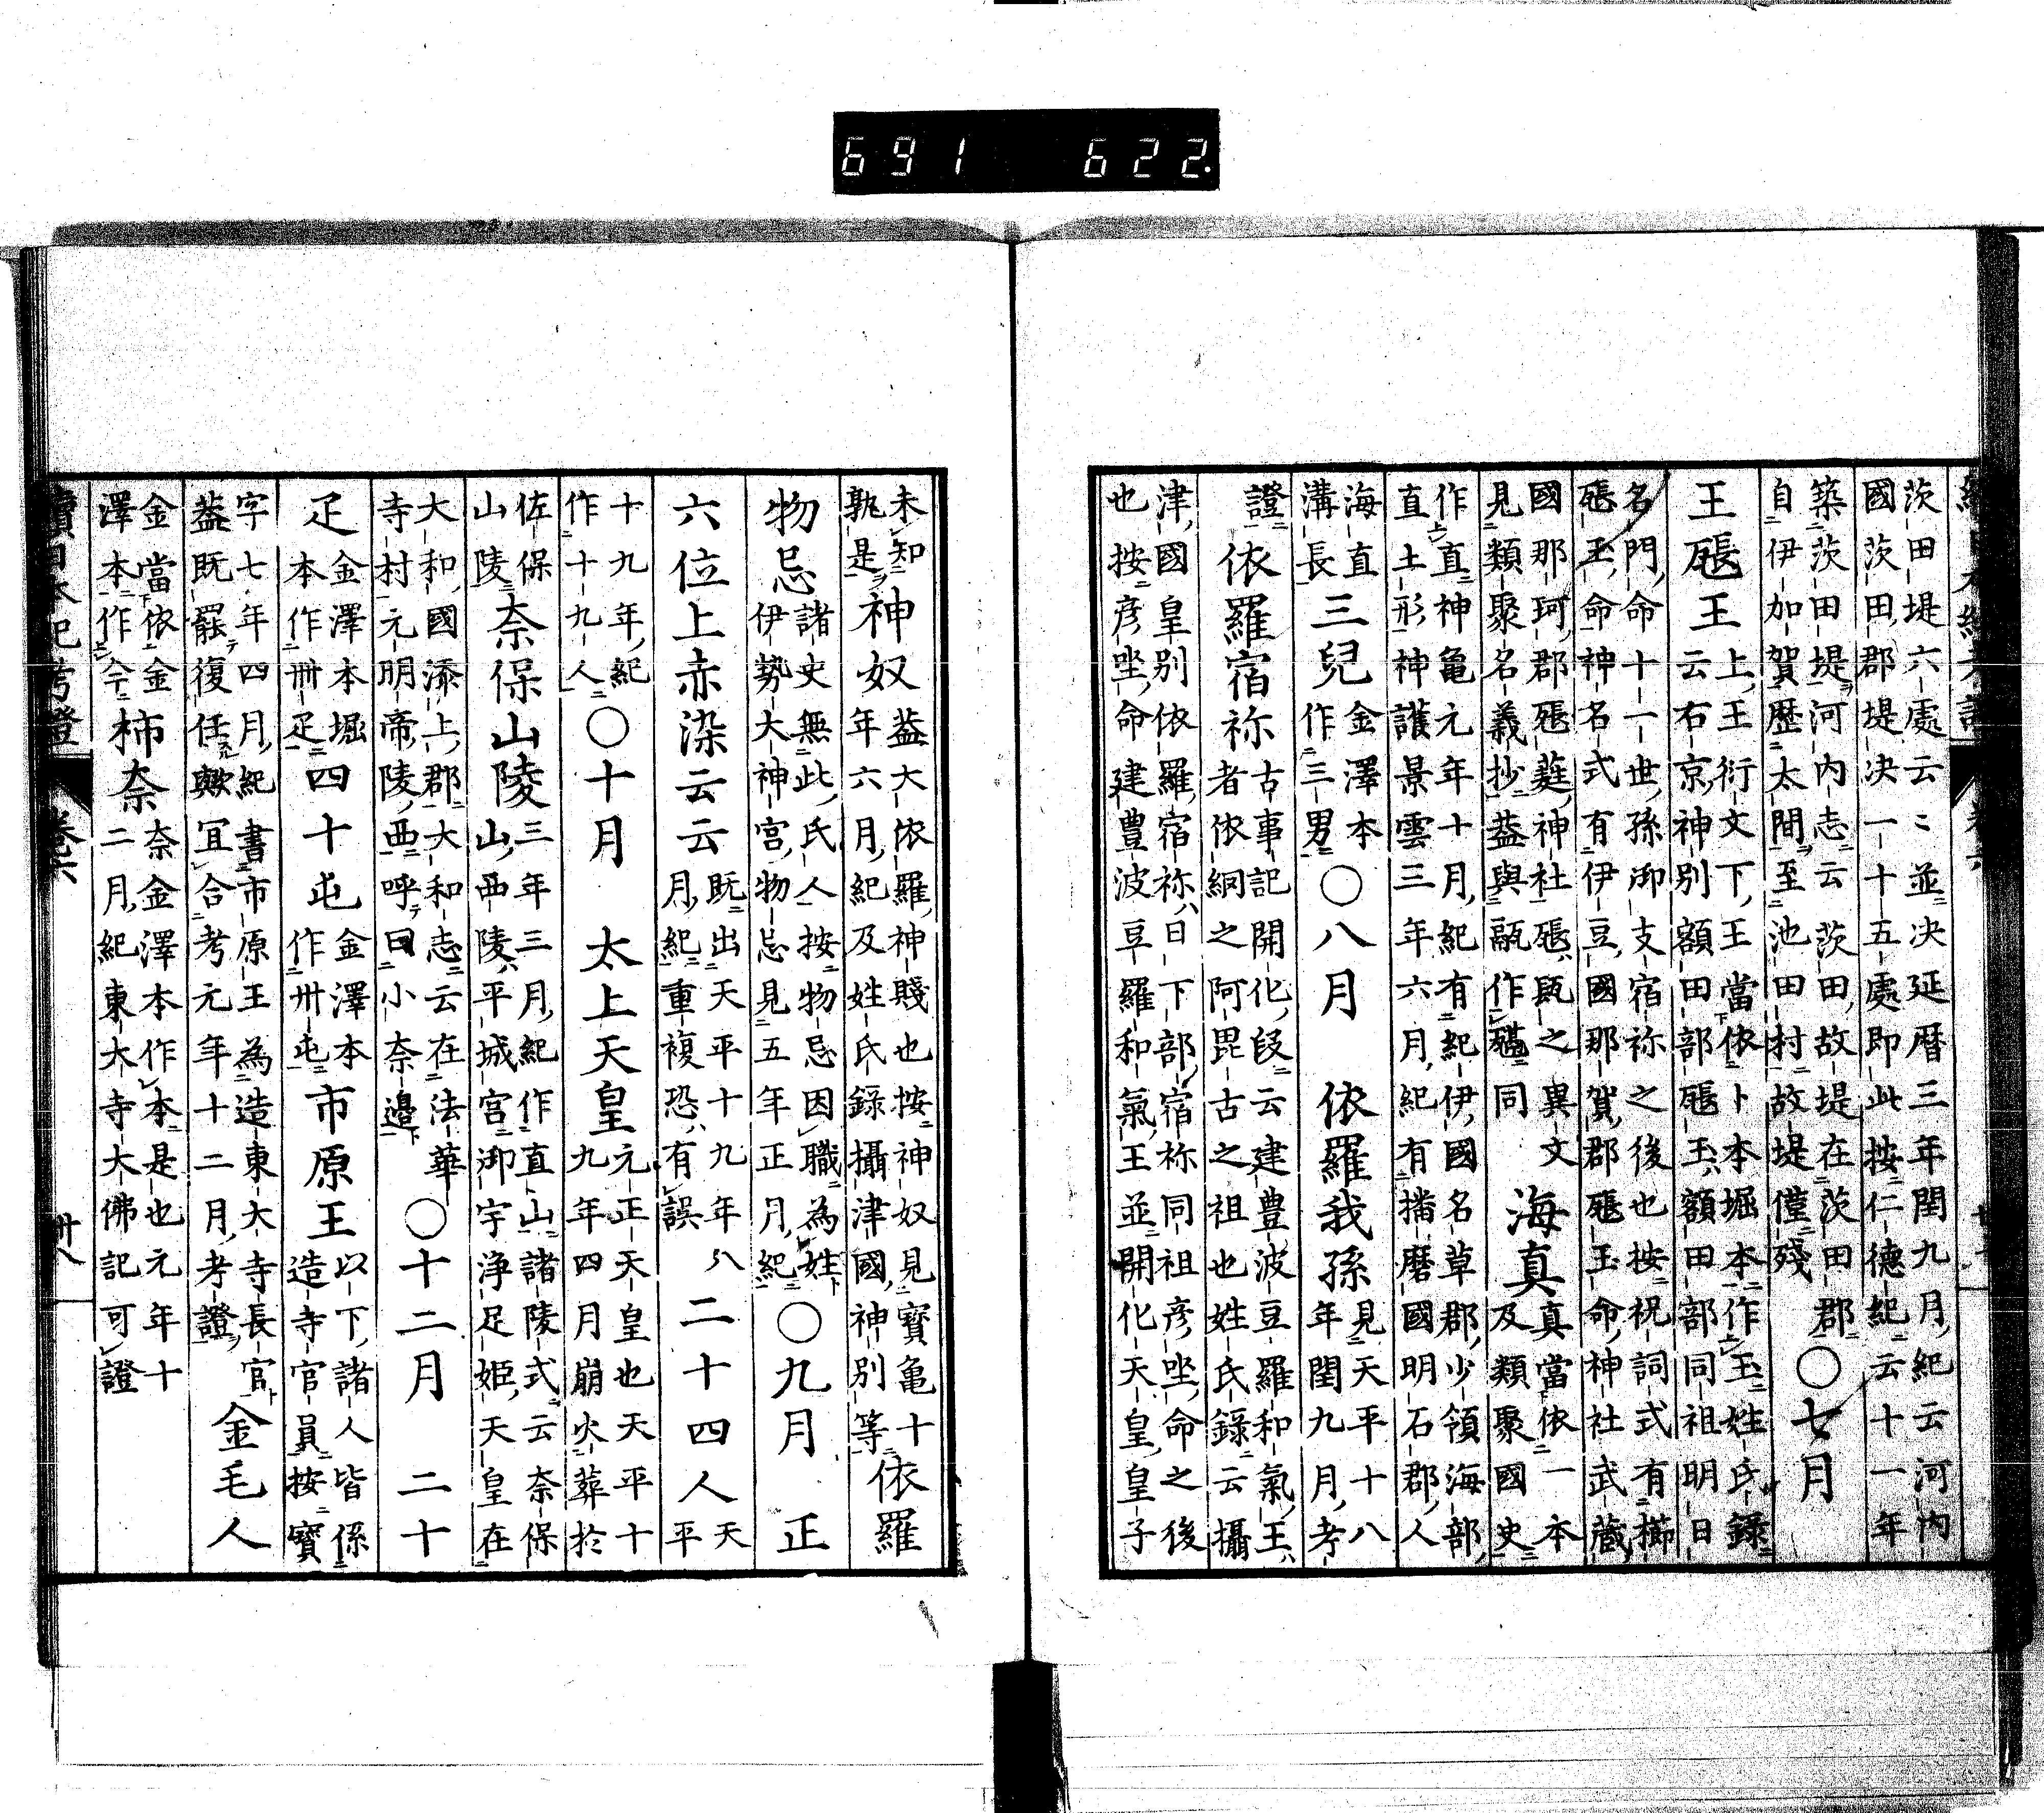 691 622.
茨田堤六處云〻並决延暦三年閏九月紀云河内
國茨田郡堤决一十五處即此按仁德紀云十一年
築茨田堤河内志云茨田故堤在茨田郡
自伊加賀歴太間至池田村故堤僅殘 〇七月
王㼽王 上王衍文下王當依卜本堀本作玉姓氏錄
云右京神別額田部㼽玉額田部同祖明日
名門命十一世孫御支宿祢之後也按祝詞式有櫛
㼽玉命神名式有伊豆國那賀郡㼽玉命神社武藏
國那珂郡㼽䕋神社㼽瓺之異文
見類聚名義抄蓋與㼽作同 海真 真當依一本
及類聚國史
作直神亀元年十月紀有紀伊國名草郡少領海部
直土形神護景雲三年六月紀有播磨國明石郡人
海直
溝長 三兒 金澤本
作三男 〇八月 依羅我孫 見天平十八
年閏九月考
證 依羅宿祢 古事記開化段云建豊波豆羅和氣王
者依網之阿毘古之祖也姓氏錄云攝
津國皇別依羅宿祢日下部宿祢同祖彦坐命之後
也按彦坐命建豊波豆羅和氣王並開化天皇皇子
未知
孰是 神奴 蓋大依羅神賤也按神奴見寶亀十
年六月紀及姓氏錄攝津國神別等 依羅
物忌 諸史無此氏人按物忌因職為姓
伊勢大神宮物忌見五年正月紀 〇九月 正
六位上赤染云云 既出天平十九年八
月紀重複恐有誤 二十四人 天
平
十九年紀
作十九人 〇十月 太上天皇 元正天皇也天平十
九年四月崩火葬於
佐保
山陵 奈保山陵 三年三月紀作直山諸陵式云奈保
山西陵平城宮御宇浄足姫天皇在
大和國添上郡大和志云在法華
寺村元明帝陵西呼曰小奈邉 〇十二月 二十
疋 金澤本堀
本作卌疋 四十屯 金澤本
作卅屯 市原王 以下諸人皆係
造寺官員按寶
字七年四月紀書市原王為造東大寺長官
蓋既罷復任歟宜合考元年十二月考證 金毛人
金當依金
澤本作今 柿奈 奈金澤本作本是也元年十
二月紀東大寺大佛記可證
續日本紀考證 卷六 卅八